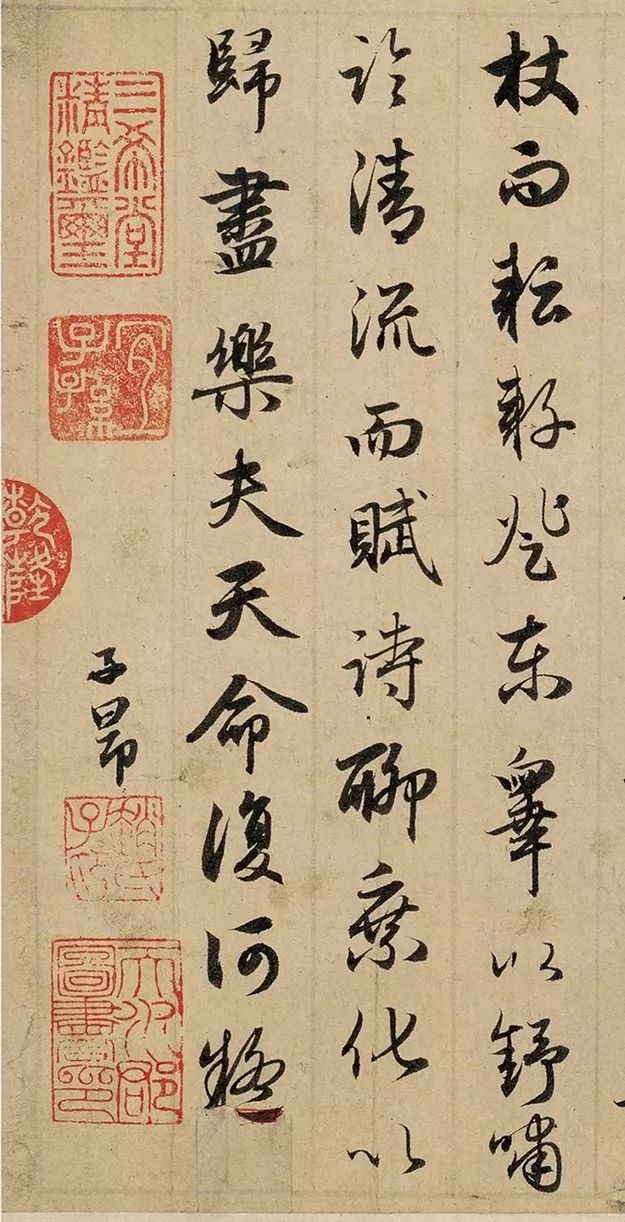 杖而耘耔登東皋以舒嘯
臨清流而賦詩聊乘化以
歸盡樂夫天命復何疑
子昂
三希堂精鑑璽
宜子孫
乾隆
趙氏子昂
天水郡圖書印